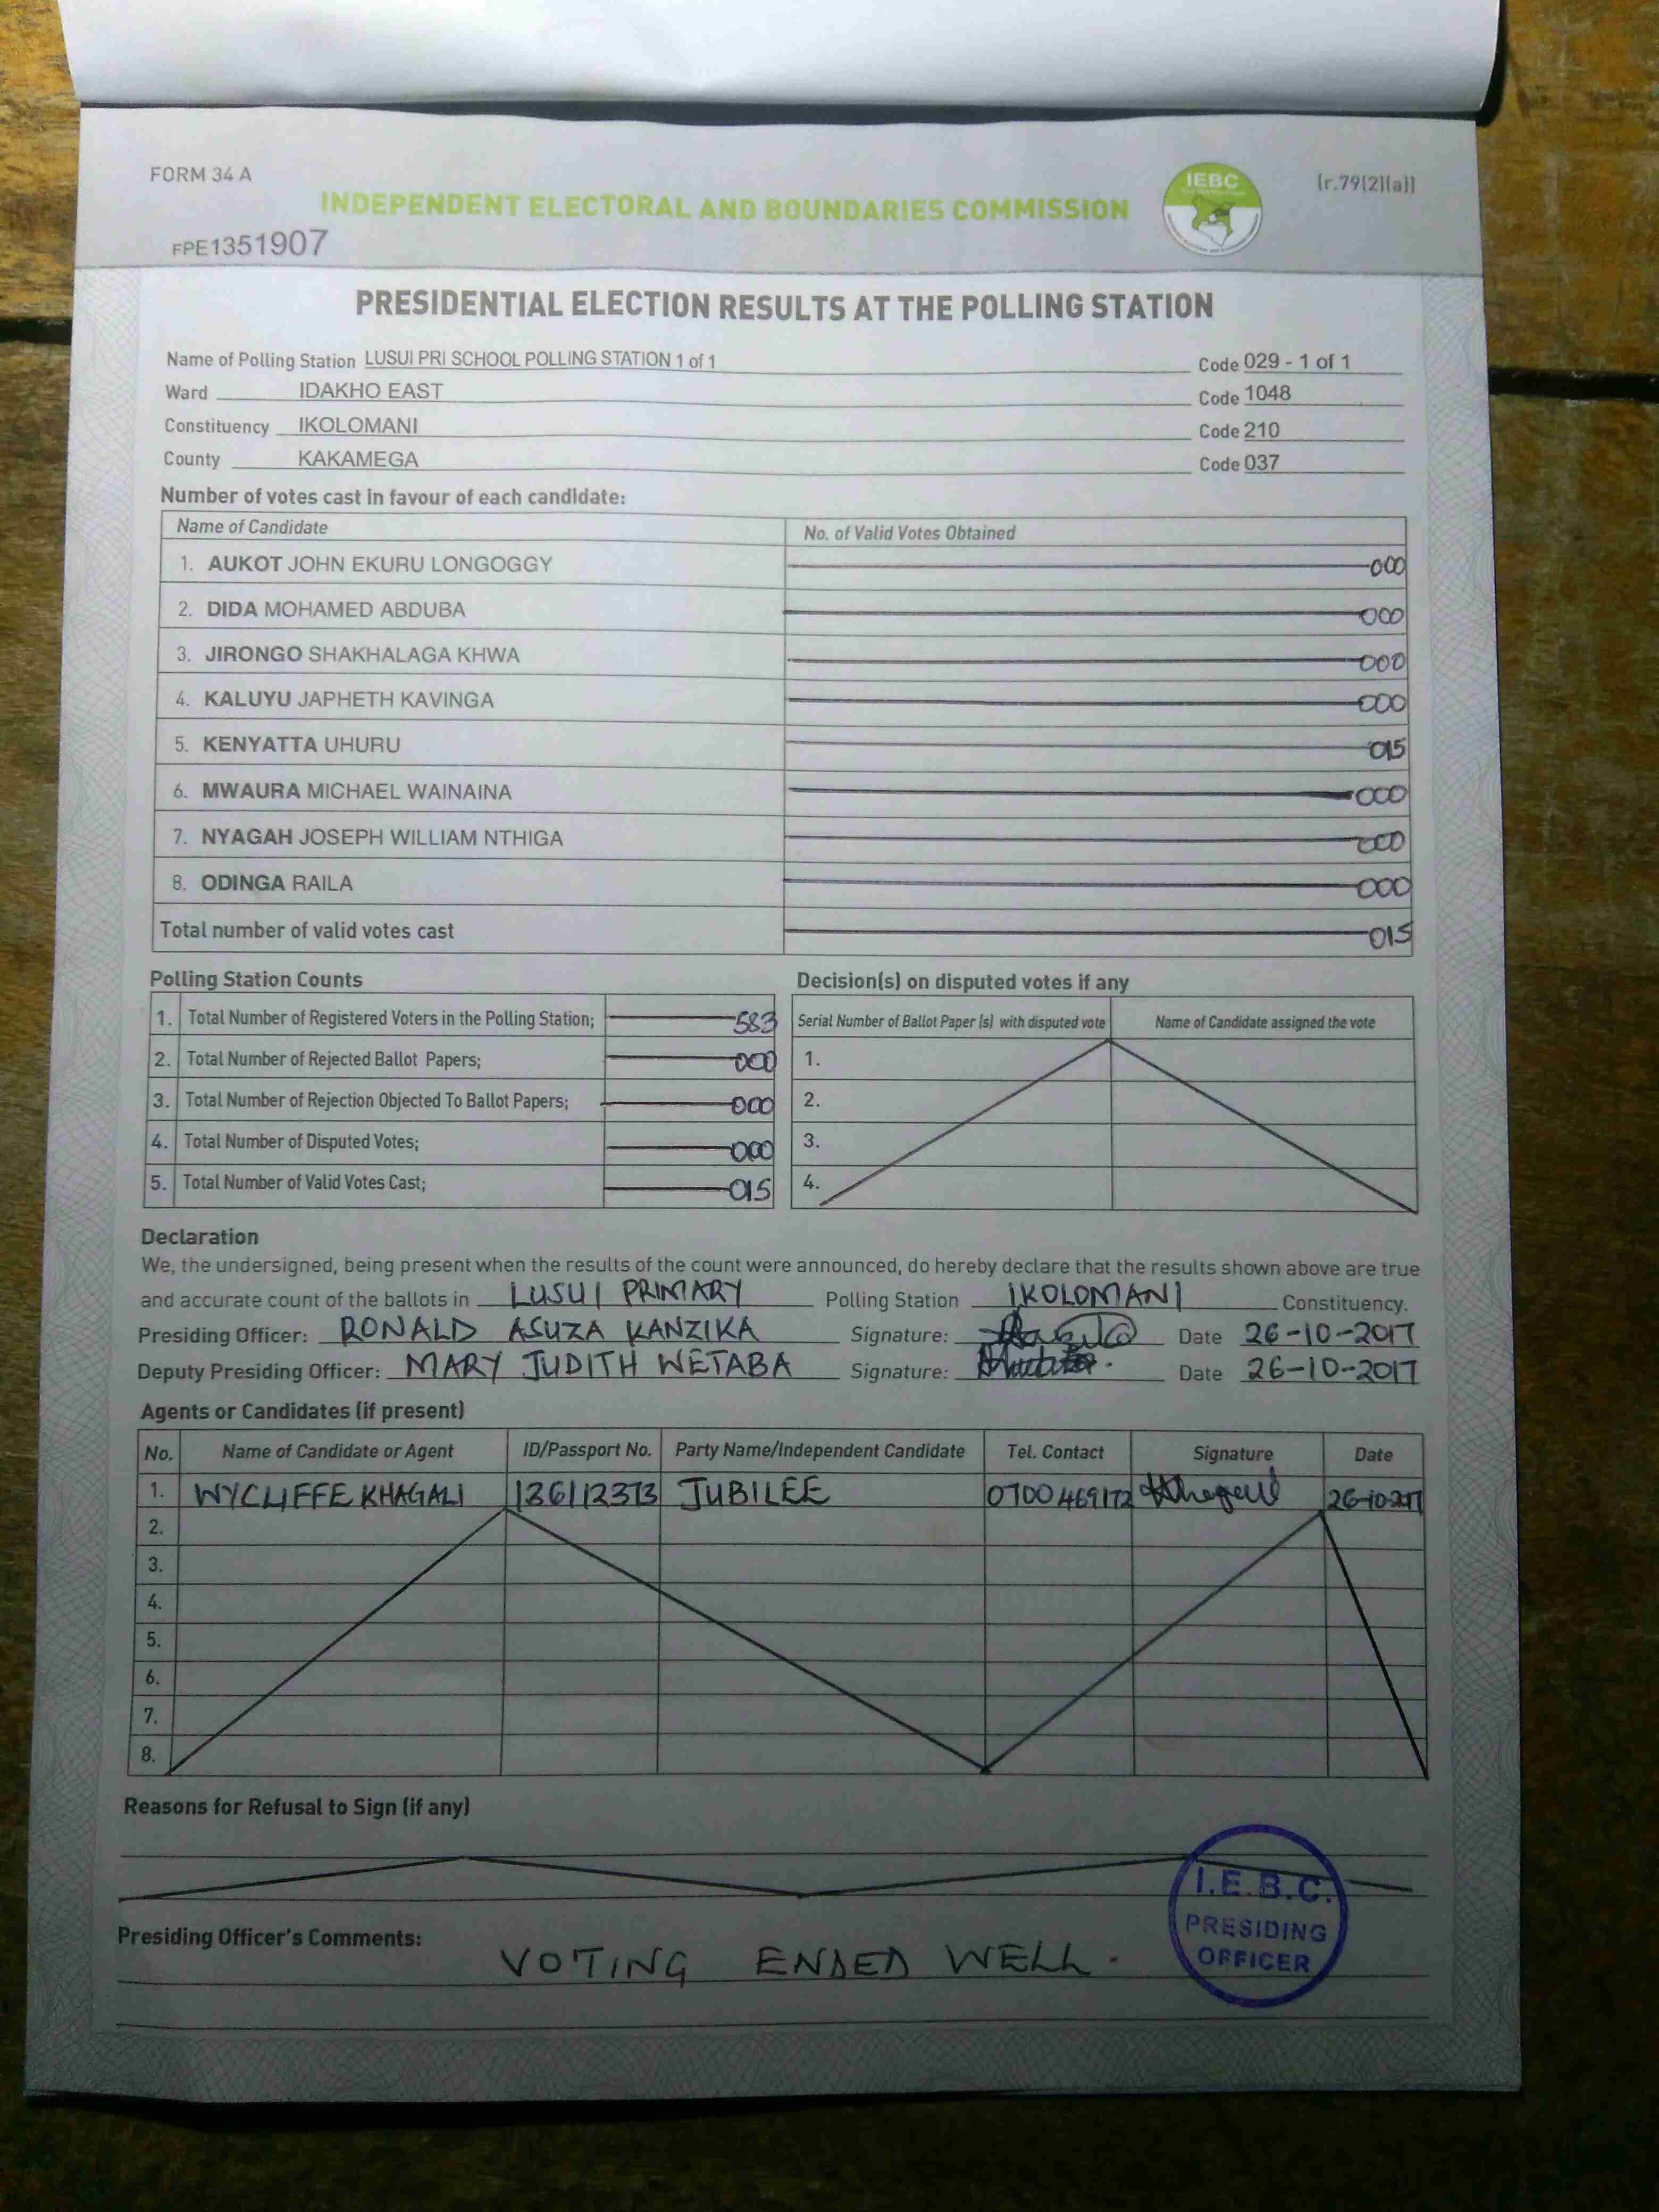 FORM 34 A
INDEPENDENT ELECTORAL AND BOUNDARIES COMMISSION
IEBC
(r.79(2)(a))
FPE1351907
PRESIDENTIAL ELECTION RESULTS AT THE POLLING STATION
Name of Polling Station LUSUI PRI SCHOOL POLLING STATION 1 of 1 Code 029 - 1 of 1
Ward IDAKHO EAST Code 1048
Constituency IKOLOMANI Code 210
County KAKAMEGA Code 037
Number of votes cast in favour of each candidate:
Name of Candidate No. of Valid Votes Obtained
1. AUKOT JOHN EKURU LONGOGGY 000
2. DIDA MOHAMED ABDUBA 000
3. JIRONGO SHAKHALAGA KHWA 000
4. KALUYU JAPHETH KAVINGA 000
5. KENYATTA UHURU 015
6. MWAURA MICHAEL WAINAINA 000
7. NYAGAH JOSEPH WILLIAM NTHIGA 000
8. ODINGA RAILA 000
Total number of valid votes cast 015
Polling Station Counts
1. Total Number of Registered Voters in the Polling Station; 583
2. Total Number of Rejected Ballot Papers; 000
3. Total Number of Rejection Objected To Ballot Papers; 000
4. Total Number of Disputed Votes; 000
5. Total Number of Valid Votes Cast; 015
Decision(s) on disputed votes if any
Serial Number of Ballot Paper (s) with disputed vote Name of Candidate assigned the vote
1.
2.
3.
4.
Declaration
We, the undersigned, being present when the results of the count were announced, do hereby declare that the results shown above are true
and accurate count of the ballots in LUSUI PRIMARY Polling Station IKOLOMANI Constituency.
Presiding Officer: RONALD ASUZA KANZIKA Signature: Date 26-10-2017
Deputy Presiding Officer: MARY JUDITH WETABA Signature: Date 26-10-2017
Agents or Candidates (if present)
No. Name of Candidate or Agent ID/Passport No. Party Name/Independent Candidate Tel. Contact Signature Date
1. WYCLIFFE KHAGALI JUBILEE 0700469172 26-10-2017
2.
3.
4.
5.
6.
7.
8.
Reasons for Refusal to Sign (if any)
I.E.B.C.
PRESIDING
OFFICER
Presiding Officer's Comments: VOTING ENDED WELL.